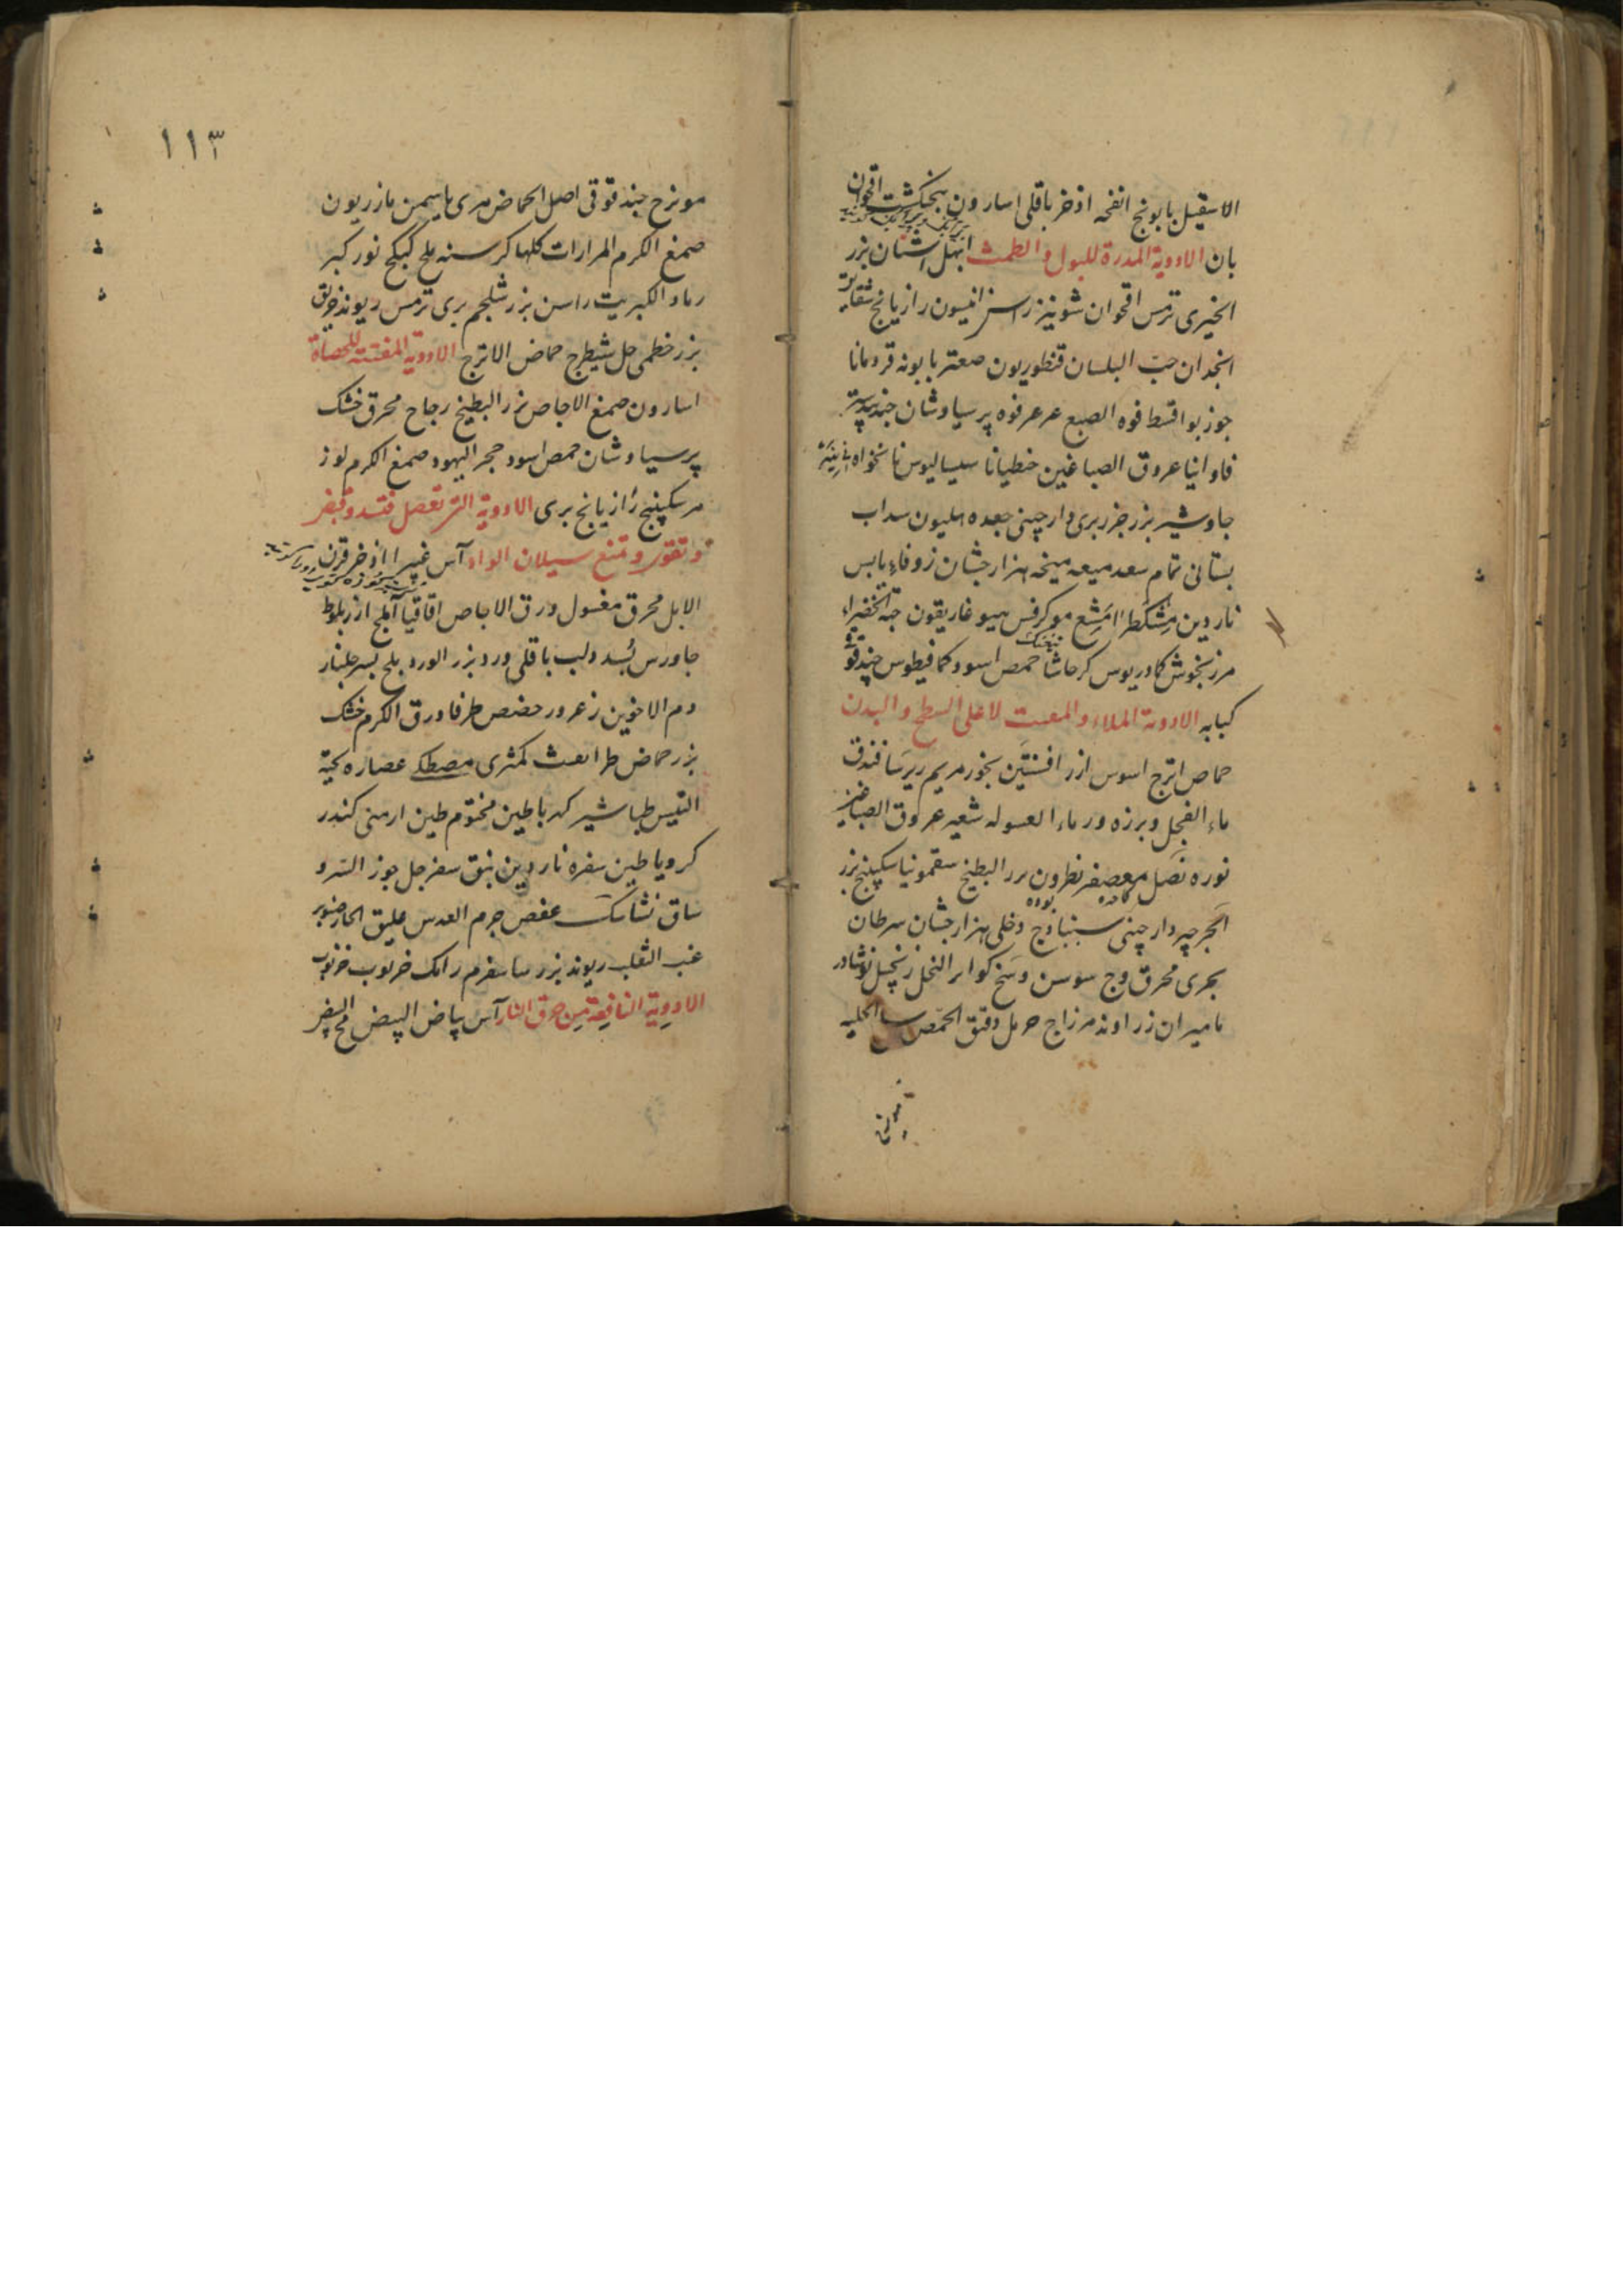 الاسقیل بابونج انفحه اذخر باقلی اسارون بنجنکشت اقحوان
بان الادویة المدرة للبول والطمث ابهل اشنان بزر
الخیری ترمس اقحوان شونیز انیسون رازیانج
انجدان حبّ البلسان قنطوریون صعتر بابونه قردمانا
جوز بوا قسط فوه الصبغ عرعر فوه پرسیاوشان جندبیدستر
فاوانیا عروق الصباغین جنطیانا سیسالیوس نانخواه
جاوشیر بزر جزر بری دارچینی جعده هلیون سداب
بستانی نمام سعد میعه میخه هزارجشان زوفاء یابس
ناردین مشکطرامشیع مو کرفس هیو غاریقون حبة الخضراء
مرزنجوش کمادریوس حاشا حمص اسود کمافیطوس حندقوقی
کبابه الادویة الجلاء لاعلی السطح والبدن
حماض اترج اسوس ازر افسنتین بخور مریم فندق
ماء الفجل العسوله شعیر عروق الصباغین
نوره بصل معصفر نطرون بزر البطیخ سقمونیا سکبینج بزر
الجرجیر دارچینی سنبادج دخلی هزارجشان سرطان
بحری محرق وج سوسن وسخ کوایر النحل زنجبیل نوشادر
مامیران زراوند حرمل دقیق الحمّص الحلبه
مویزج
۱۱۳
مویزج حندقوقی اصل الحماض مری یاسمین مازریون
صمغ الکرم المرارات کلها کرسنه ملح کبیکج نور کبر
رماد الکبریت راسن بزر شلجم بری ترمس ریوند خربق
بزر خطمی خل شیطرج حماض الاترج الادویة المفتتة للحصاة
اسارون صمغ الاجاص بزر البطیخ زجاج محرق خشک
پرسیاوشان حمص اسود حجر الیهود صمغ الکرم لوز
مر سکبینج رازیانج بری الادویة التی
وتقوی وتمنع سیلان المواد آس غبیرا اذخر قرن
الایل محرق مغسول ورق الاجاص اقاقیا آملج ازر بلوط
جاورس بُسد دلب باقلی ورد بزر الورد بلح بسر جلنار
دم الاخوین زعرور حضض طرفا ورق الکرم خشک
بزر حماض طراثیث کمثری مصطکی عصاره لحیة
التیس طباشیر کهربا طین مختوم طین ارمنی کندر
کرویا طین سفره ناردین نبق سفرجل جوز السرو
ساق نشاسک عفص جرم العدس علیق
عنب الثعلب ریوند بزر رامک خرنوب
الادویة النافعة من حرق النار آس بیاض البیض